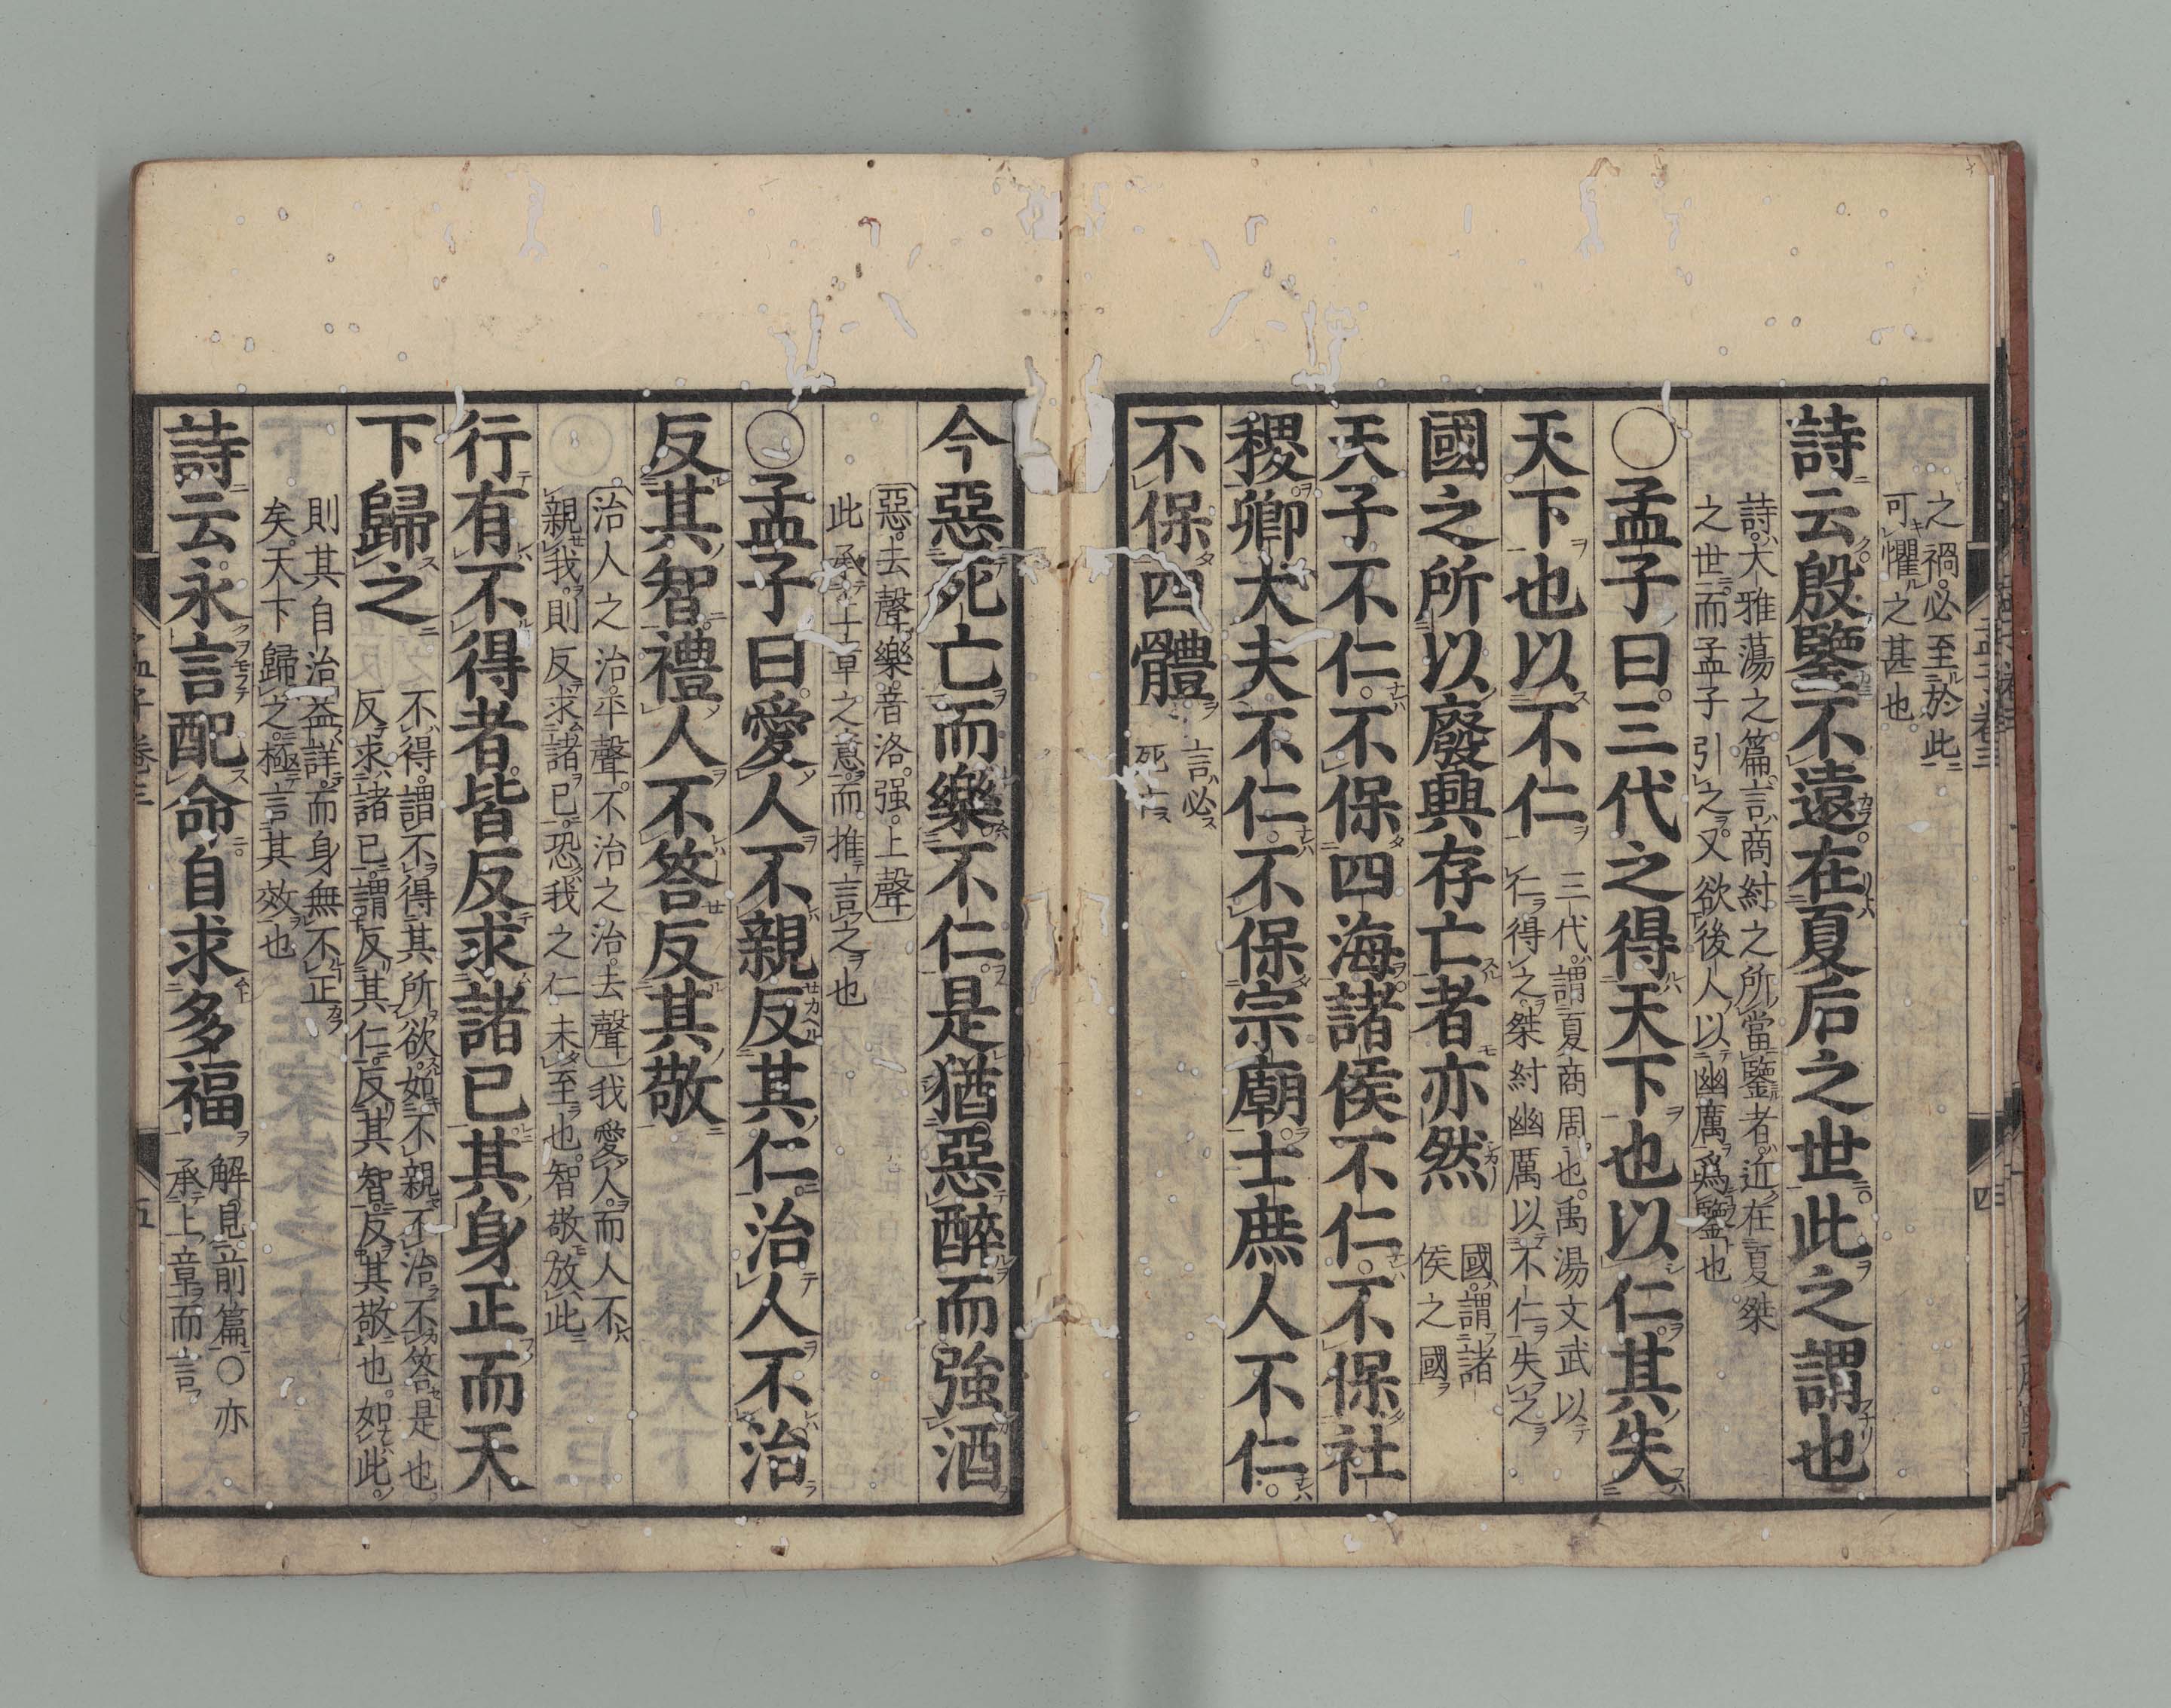 之禍必至於此
可懼之甚也
詩云殷鑒不遠在夏后之世此之謂也
詩大雅蕩之篇言商紂之所當鑒者近在夏桀
之世而孟子引之又欲後人以幽厲爲鑒也
○孟子曰三代之得天下也以仁其失
天下也以不仁
三代謂夏商周也禹湯文武以
仁得之桀紂幽厲以不仁失之
國之所以廢興存亡者亦然
國謂諸
侯之國
天子不仁不保四海諸侯不仁不保社
稷卿大夫不仁不保宗廟士庶人不仁
不保四體
言必
死亡
今惡死亡而樂不仁是猶惡醉而強酒
惡去聲樂音洛强上聲
此承上章之意而推言之也
○孟子曰愛人不親反其仁治人不治
反其智禮人不答反其敬
治人之治平聲不治之治去聲我愛人而人不
親我則反求諸已恐我之仁未至也智敬放此
行有不得者皆反求諸已其身正而天
下歸之
不得謂不得其所欲如不親不治不答是也
反求諸已謂反其仁反其智反其敬也如此
則其自治益詳而身無不正
矣天下歸之極言其效也
詩云永言配命自求多福
解見前篇○亦
承上章而言
孟子卷三
四
孟子卷三
五